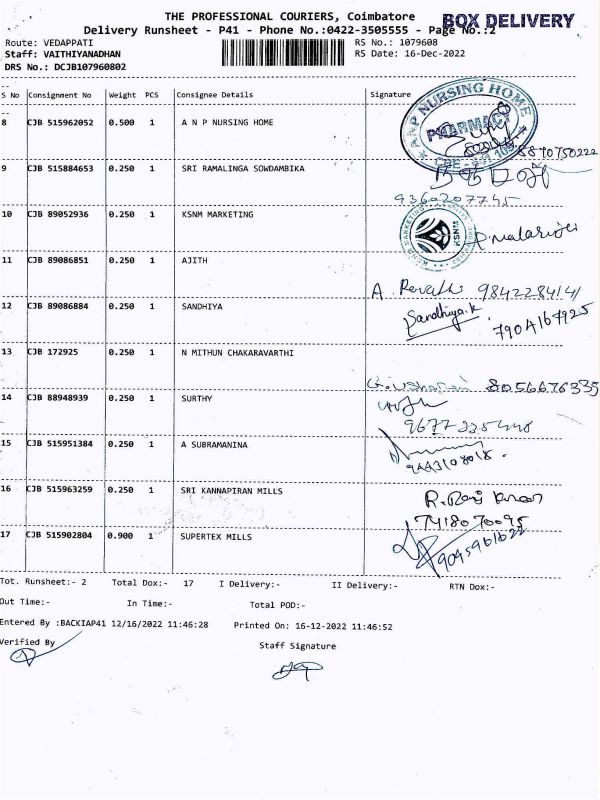 THE PROFESSIONAL COURIERS, Coimbatore
BOX DELIVERY
Delivery Runsheet - P41 - Phone No.:0422-3505555 - Page No.:2
Route: VEDAPPATI
RS No.: 1079608
Staff: VAITHIYANADHAN
RS Date: 16-Dec-2022
DRS No.: DCJB107960802
S No Consignment No Weight PCS Consignee Details Signature
8 CJB 515962052 0.500 1 A N P NURSING HOME
ANP NURSING HOME
PHARMACY
8870750222
9 CJB 515884653 0.250 1 SRI RAMALINGA SOWDAMBIKA
9360207745
10 CJB 89052936 0.250 1 KSNM MARKETING
KSNM MARKETING
KSNM
P.malarvizhi
11 CJB 89086851 0.250 1 AJITH
A. Revathi 9842284141
12 CJB 89086884 0.250 1 SANDHIYA
Sandhiya.K
7904167925
13 CJB 172925 0.250 1 N MITHUN CHAKARAVARTHI
8056676335
14 CJB 88948939 0.250 1 SURTHY
15 CJB 515951384 0.250 1 A SUBRAMANINA
9443108018.
16 CJB 515963259 0.250 1 SRI KANNAPIRAN MILLS
R.Raj
7418070095
17 CJB 515902804 0.900 1 SUPERTEX MILLS
Tot. Runsheet:- 2 Total Dox:- 17 I Delivery:- II Delivery:- RTN Dox:-
Out Time:- In Time:- Total POD:-
Entered By :BACKIAP41 12/16/2022 11:46:28 Printed On: 16-12-2022 11:46:52
Verified By
Staff Signature